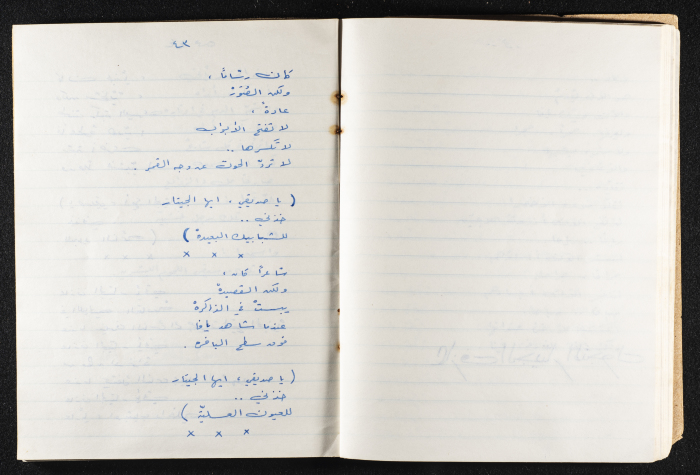 ٤٣
كان رسّامًا ،
ولكن الصُوَرْ
عادةً ،
لا تفتح الأبواب
لا تكسرها ..
لا تردّ الحوت عن وجه القمر .
( يا صديقي ، ايها الجيتار
خذني ..
للشبابيك البعيدة )
× × ×
شاعرًا كان ؛
ولكن القصيدة
يبستْ في الذاكرة
عندما شاهد يافا
فوق سطح الباخرة .
( يا صديقي ، ايها الجيتار
خذني ..
للعيون العسليّة )
× × ×